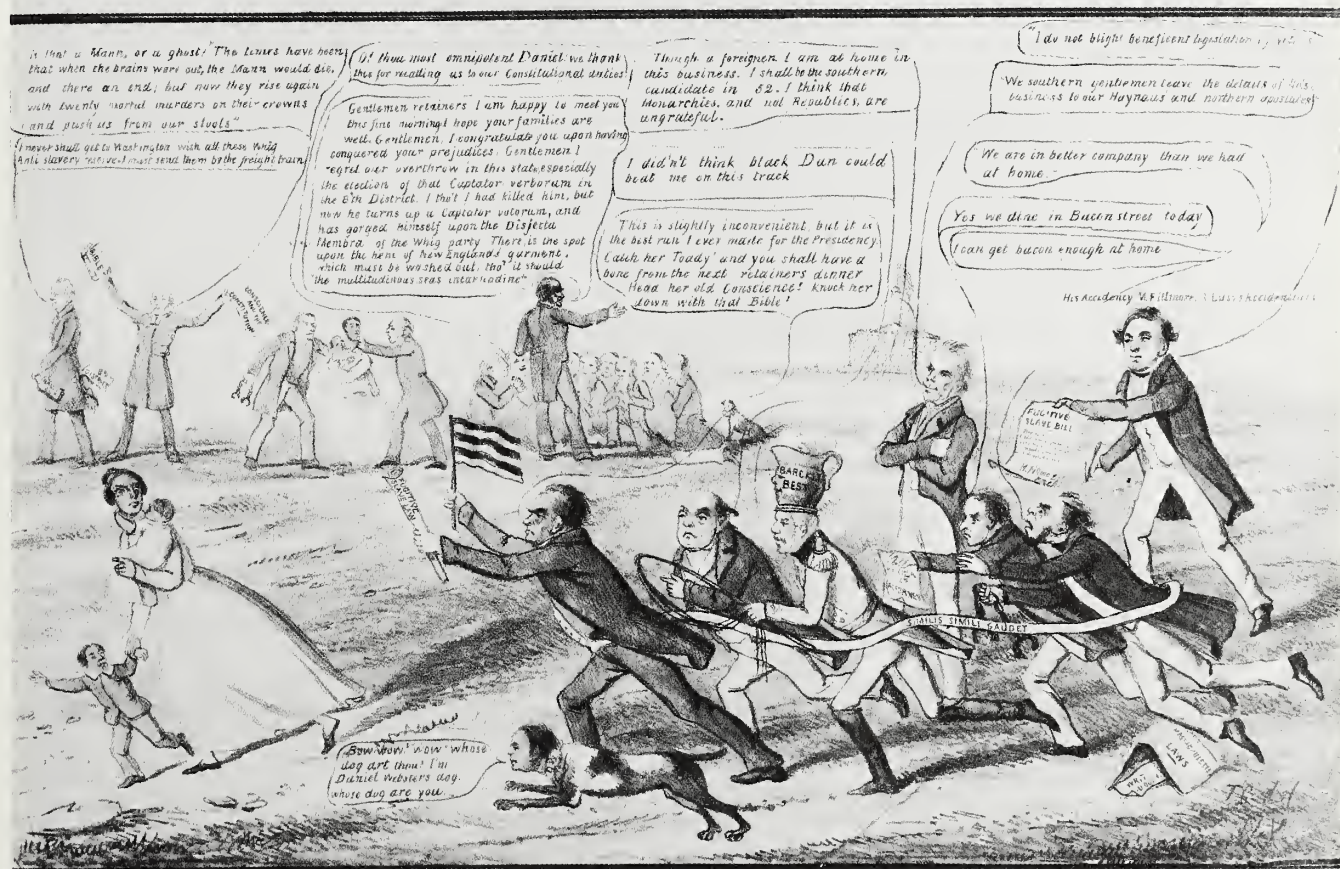 is that a Mann, or a ghost! "The times have been
that when the brains were out, the Mann would die,
and there an end; but now they rise again
with twenty mortal murders on their crowns
and push us from our stools"
I never shall get to Washington with all these Whig
Anti slavery I must send them by the freight train
O! thou most omnipotent Daniel we thank
thee for recalling us to our Constitutional duties
Gentlemen retainers I am happy to meet you
this fine morning I hope your families are
well. Gentlemen, I congratulate you upon having
conquered your prejudices. Gentlemen I
regret our overthrow in this state, especially
the election of that Captator verborum in
the 8th District. I tho't I had killed him, but
now he turns up a Captator votorum, and
has gorged himself upon the Disjecta
Membra of the Whig party There is the spot
upon the hem of New England's garment,
which must be washed out, tho' it should
the multitudinous seas incarnadine"
Though a foreigner I am at home in
this business. I shall be the southern
candidate in 52. I think that
Monarchies, and not Republics, are
ungrateful.
I did'n't think black Dan could
beat me on this track
This is slightly inconvenient, but it is
the best run I ever made for the Presidency.
Catch her Toady! and you shall have a
bone from the next retainers dinner
Head her old Conscience! knock her
down with that Bible!
"I do not blight beneficent legislation
"We southern gentlemen leave the details of this
business to our Haynaus and northern apostates"
We are in better company than we had
at home.
Yes we dine in Bacon street today
I can get bacon enough at home
His Accidency M. Fillmore.
BIBLE
CONSCIENCE
AND THE
CONSTITUTION
FUGITIVE
SLAVE BILL
BEST
SIMILIS SIMILI GAUDET
Bow wow! wow whose
dog art thou? I'm
Daniel Websters dog.
whose dog are you
LAWS